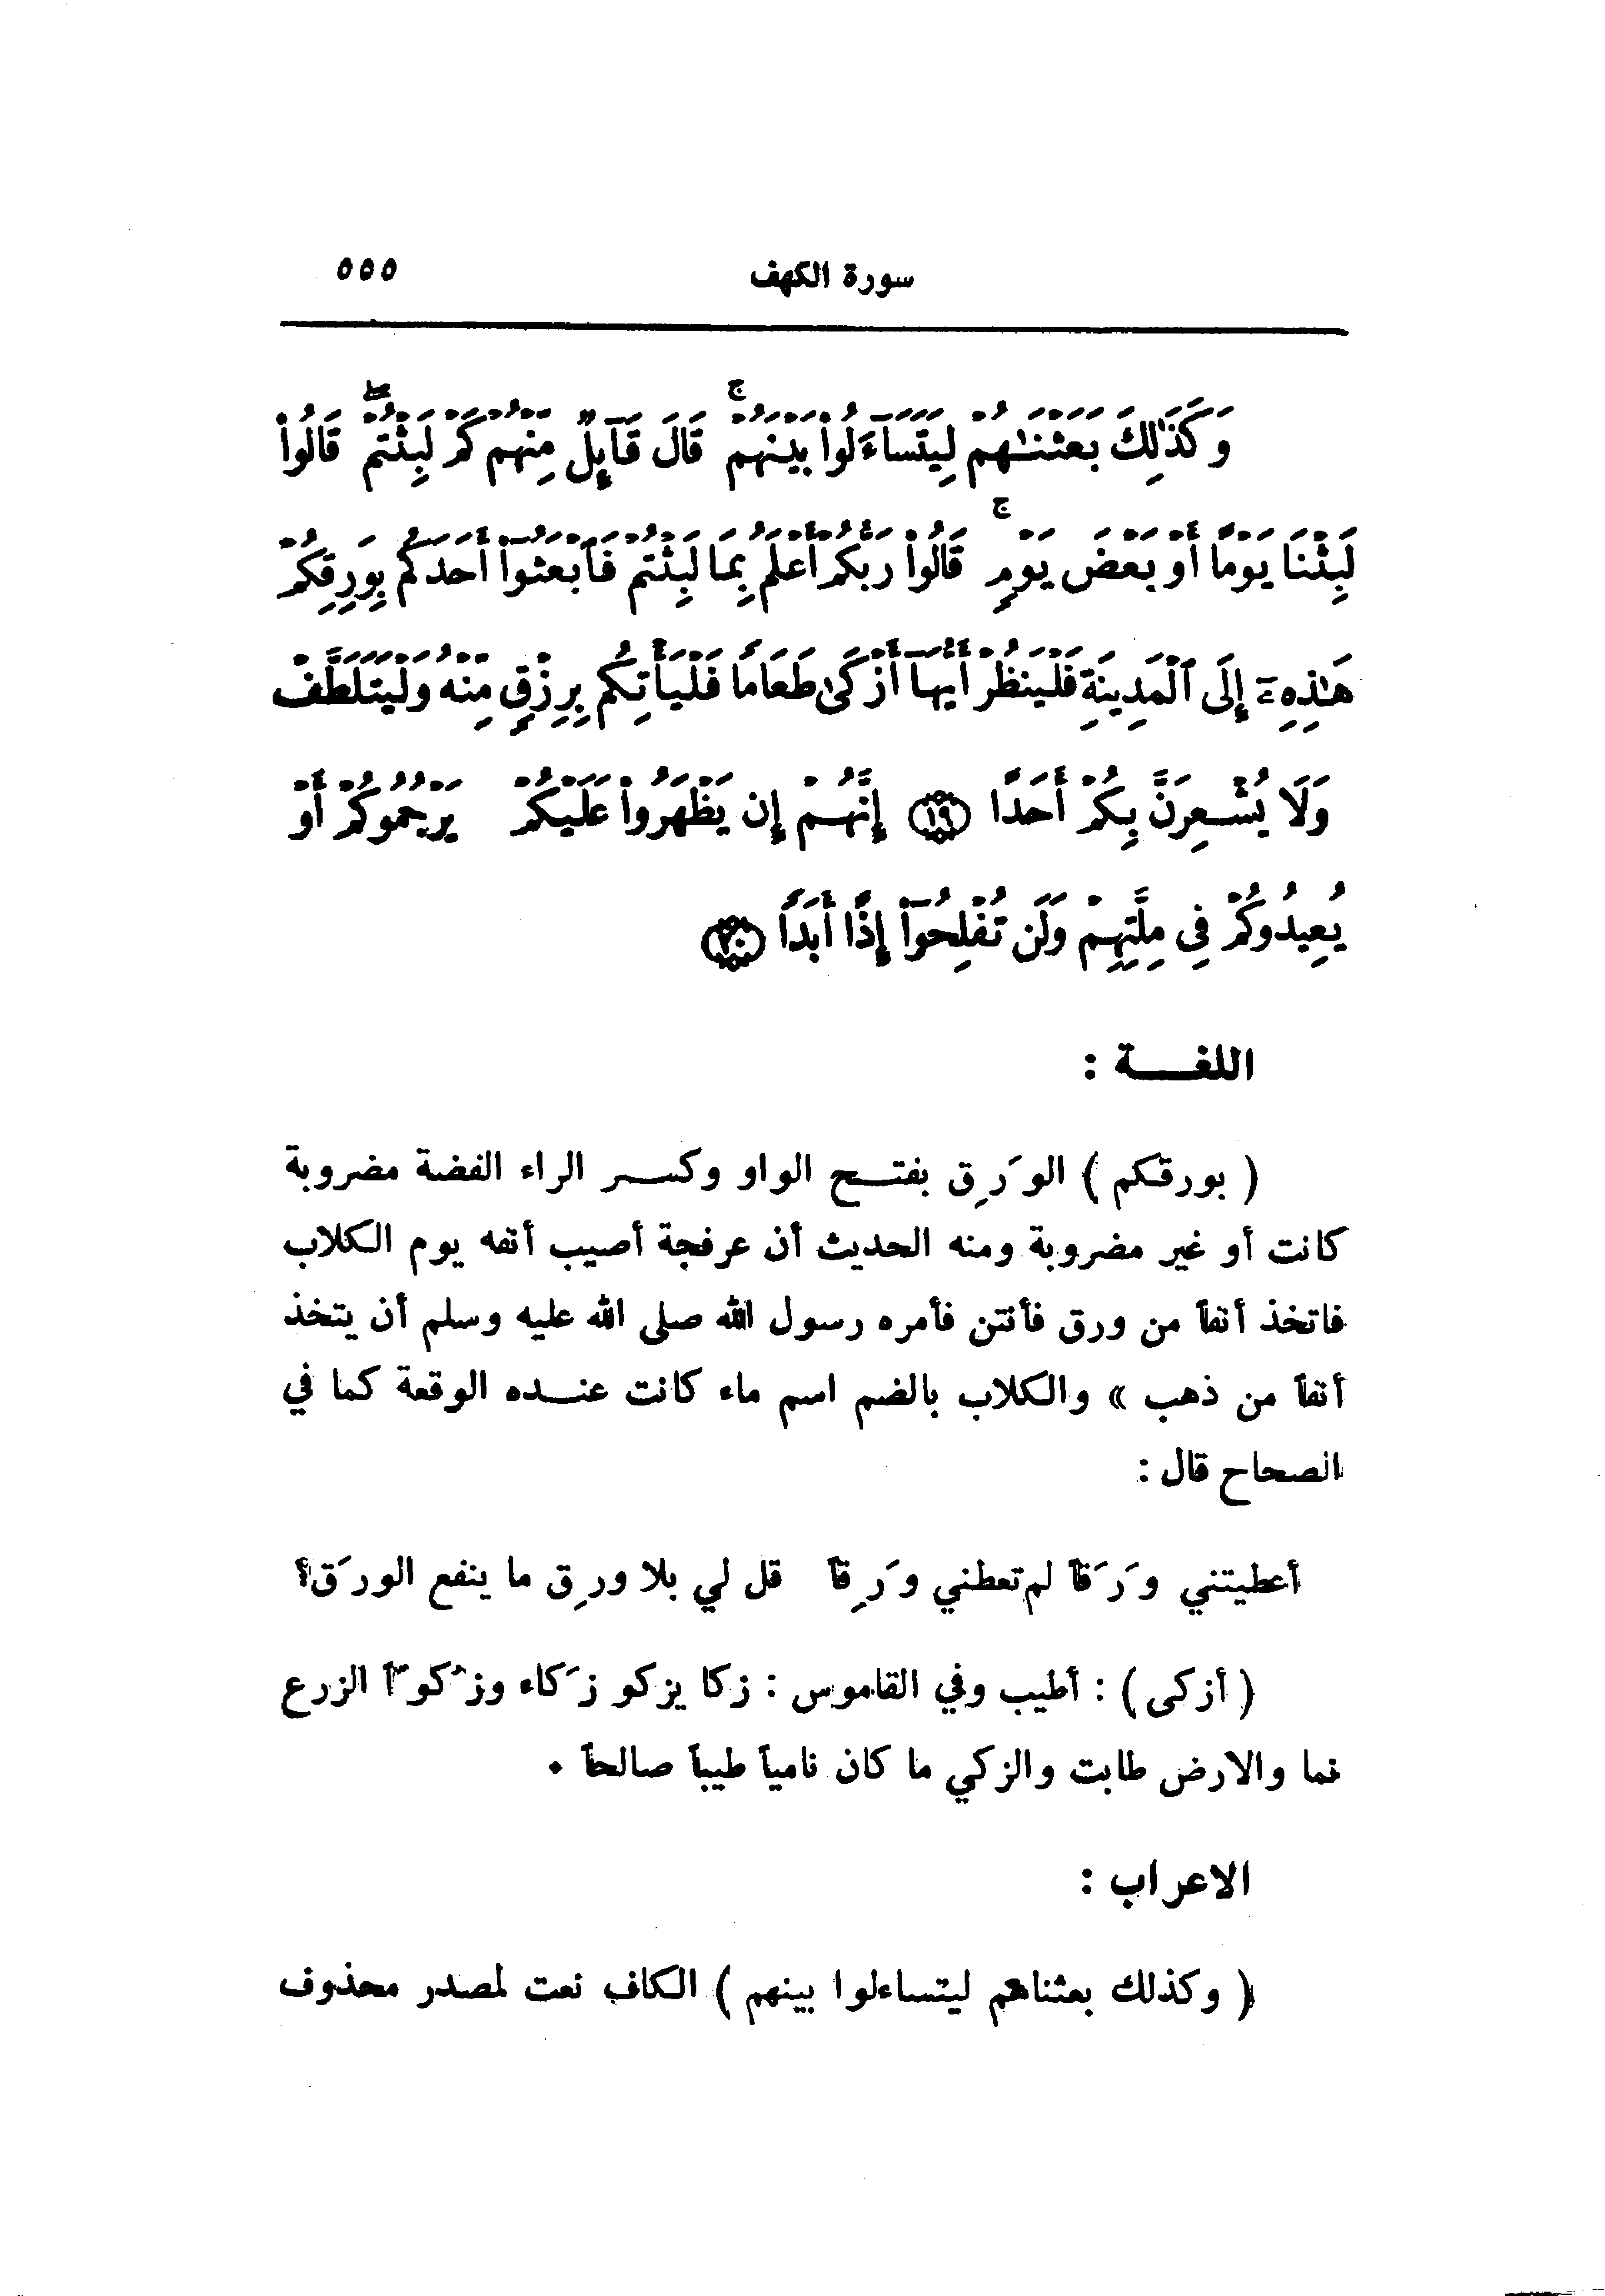 سورة الكهف ٥٥٥
وَكَذَٰلِكَ بَعَثْنَـٰهُمْ لِيَتَسَآءَلُوا۟ بَيْنَهُمْ ۚ قَالَ قَآئِلٌ مِّنْهُمْ كَمْ لَبِثْتُمْ ۖ قَالُوا۟
لَبِثْنَا يَوْمًا أَوْ بَعْضَ يَوْمٍ ۚ قَالُوا۟ رَبُّكُمْ أَعْلَمُ بِمَا لَبِثْتُمْ فَٱبْعَثُوٓا۟ أَحَدَكُم بِوَرِقِكُمْ
هَـٰذِهِۦٓ إِلَى ٱلْمَدِينَةِ فَلْيَنظُرْ أَيُّهَآ أَزْكَىٰ طَعَامًا فَلْيَأْتِكُم بِرِزْقٍ مِّنْهُ وَلْيَتَلَطَّفْ
وَلَا يُشْعِرَنَّ بِكُمْ أَحَدًا ﴿١٩﴾ إِنَّهُمْ إِن يَظْهَرُوا۟ عَلَيْكُمْ يَرْجُمُوكُمْ أَوْ
يُعِيدُوكُمْ فِى مِلَّتِهِمْ وَلَن تُفْلِحُوٓا۟ إِذًا أَبَدًا ﴿٢٠﴾
اللغـــة :
( بورقكم ) الوَرِق بفتـــح الواو وكســر الراء الفضة مضروبة
كانت أو غير مضروبة ومنه الحديث أن عرفجة أصيب أنفه يوم الكلاب
فاتخذ أنفاً من ورق فأنتن فأمره رسول الله صلى الله عليه وسلم أن يتخذ
أنفاً من ذهب » والكلاب بالضم اسم ماء كانت عنـــده الوقعة كما في
الصحاح قال :
أعطيتني وَرَقاً لم تعطني وَرِقاً قل لي بلا ورِق ما ينفع الورَق؟
( أزكى ) : أطيب وفي القاموس : زكا يزكو زَكاء وزُكوّاً الزرع
نما والارض طابت والزكي ما كان نامياً طيباً صالحاً .
الاعراب :
( وكذلك بعثناهم ليتساءلوا بينهم ) الكاف نعت لمصدر محذوف